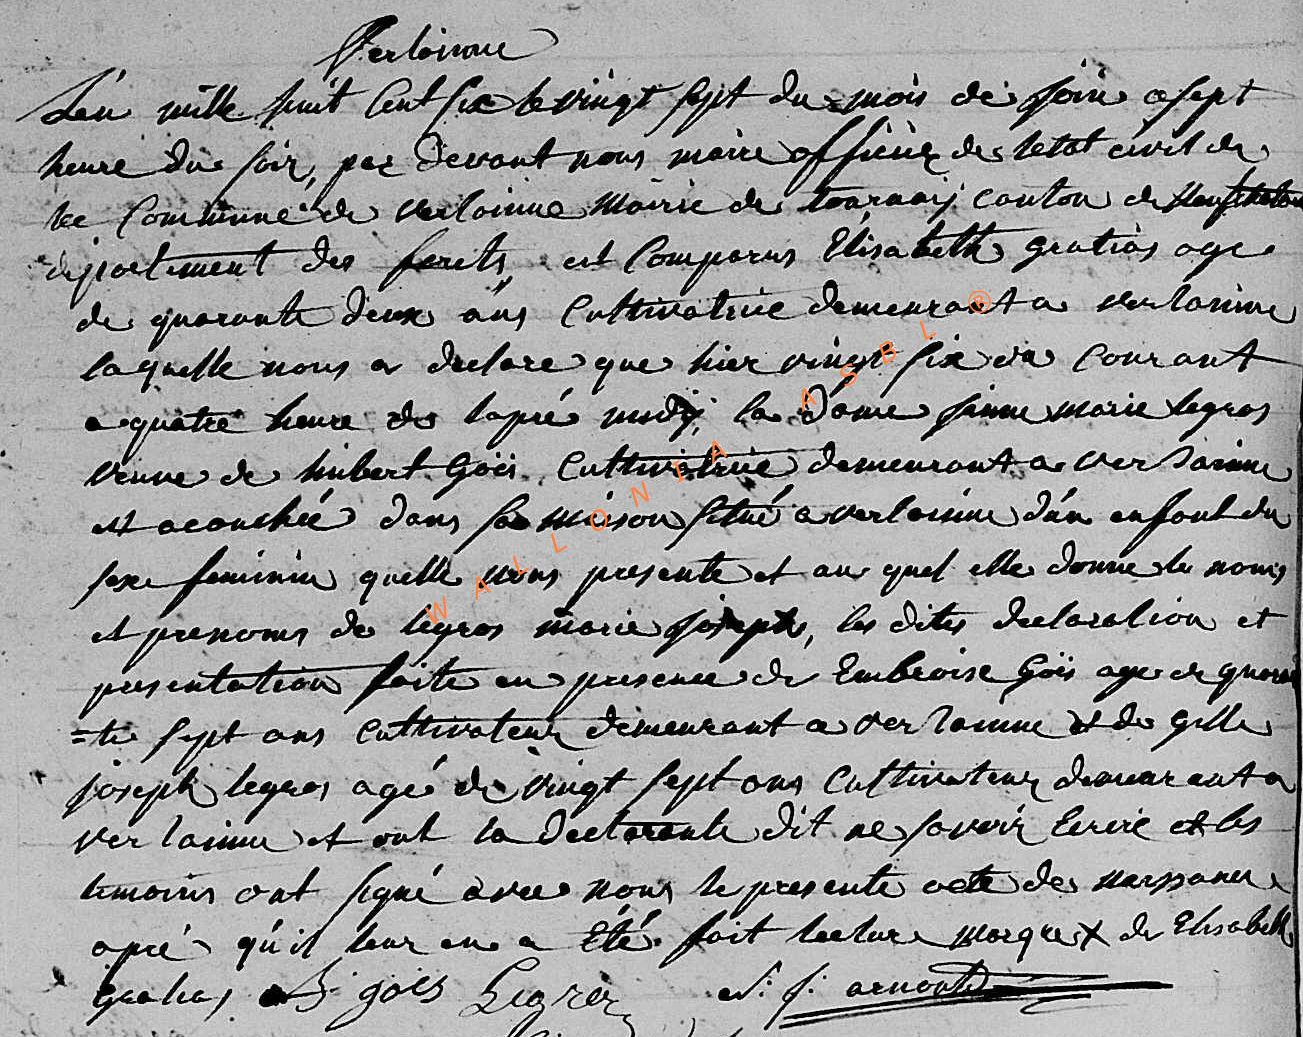 Verlainne
L'én mille huit Cent Six le vingt Sept du mois de join a sept
heure du Soir, par Devant nous maire officier de letat civil de
la Commune de verlainne Mairie de tournaij canton de Neufchateau
departement des forets, est Comparus Elisabeth gratias age
de quarante deux ans Cultivatrice demeurant a verlainne
laquelle nous a declare que hier vingt six du Courant
a quatre heure de lapré midij, la Dame Jenne marie legros
veuve de hubert Goés Cultivatrice demeurant a ver lainne
est acouchée dans sa méson située a verlainne d'un enfant du
sexe feminin quelle nous presente et au quel elle donne le noms
et prenoms de legros marie joseph, les dites declaration et
presentation faite en presence de Embroise Goés age de quaran
=te sept ans cultivateur demeurant a ver lainne et de gille
joseph legros agé de vingt sept ans Cultivateur demeurant a
ver lainne et ont la declarante dit ne savoir Ecrire et les
temoins ont signé avec nous le presente acte de naissance
apré qu'il leur en a Eté fait lecture marque X de Elisabeth
gratias goés Legros N: j: arnould
WALLONIA ASBL ®